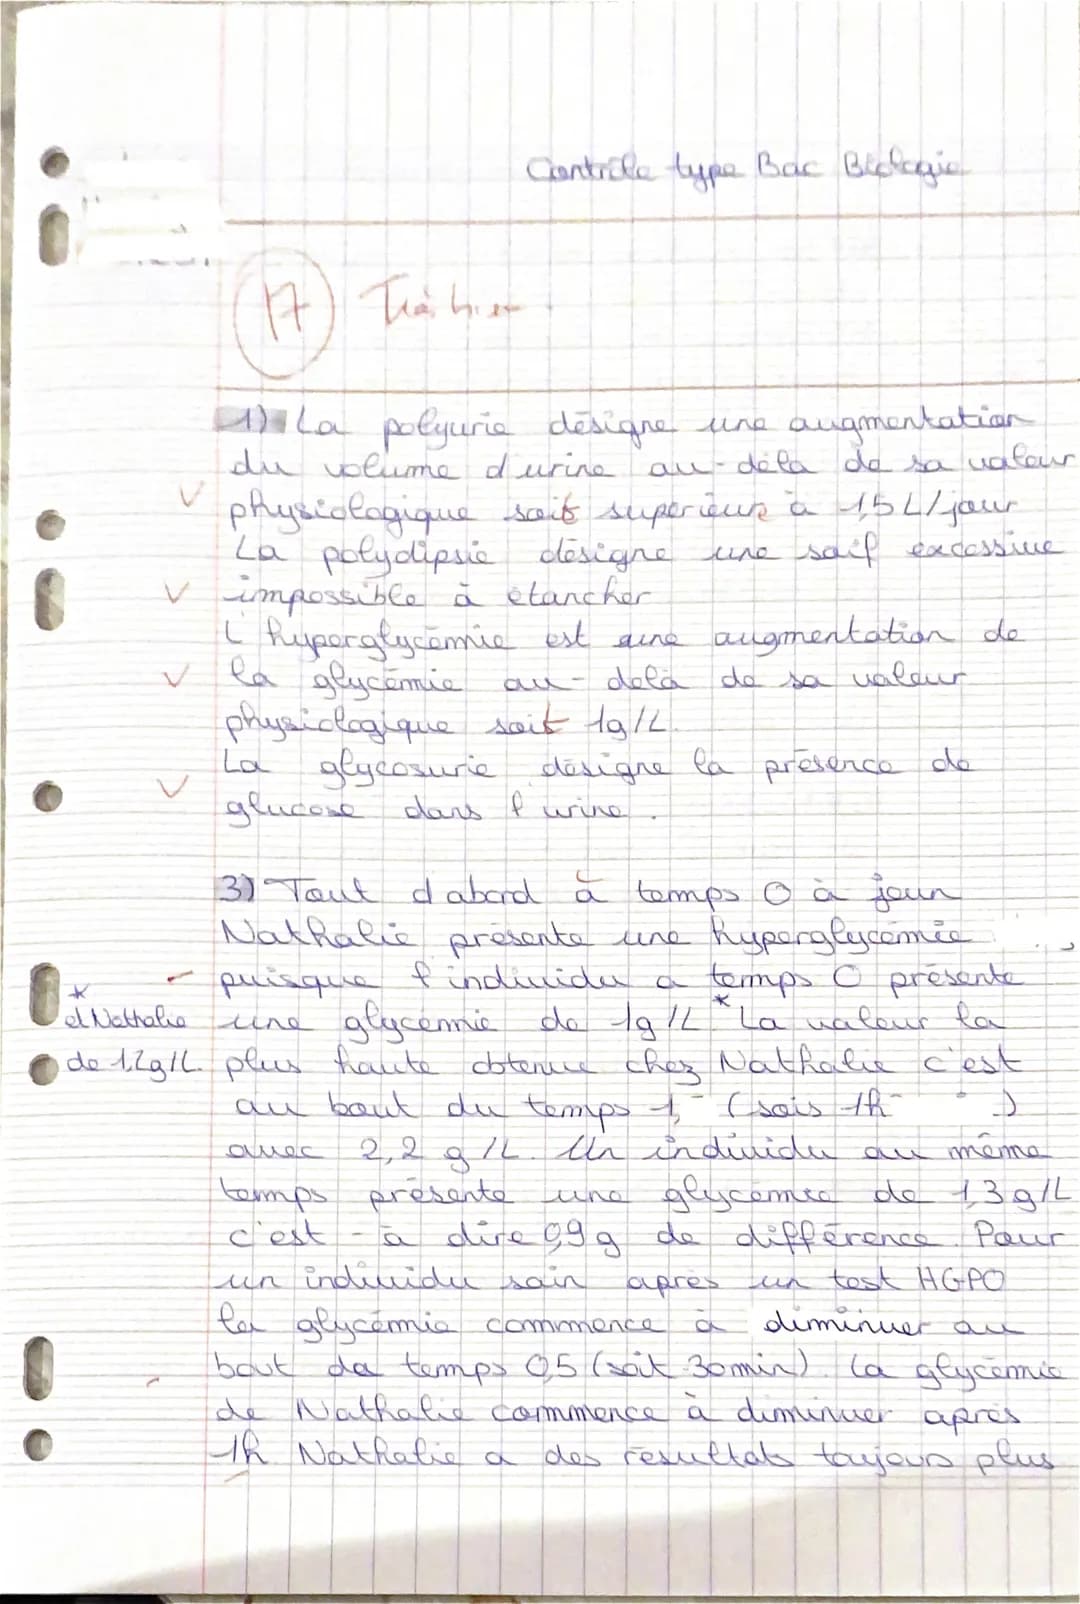 Contrôle type Bac Biologie
17 Très bien
1) La polyurie désigne une augmentation
du volume d'urine au-delà de sa valeur
physiologique soit supérieur à 1,5 L/jour
La polydipsie désigne une soif excessive
impossible à étancher
L'hyperglycémie est une augmentation de
la glycémie au-delà de sa valeur
physiologique soit 1g/L.
La glycosurie désigne la présence de
glucose dans l'urine.
3) Tout d'abord à temps 0 à jeun
Nathalie présente une hyperglycémie
puisque l'individu a temps 0 présente
une glycémie de 1g/L * La valeur la
* et Nathalie
de 1,2g/L.
plus haute obtenue chez Nathalie c'est
au bout du temps 1, (sois 1h)
avec 2,2 g/L. Un individu au même
temps présente une glycémie de 1,3 g/L
c'est-à dire 0,9 g de différence. Pour
un individu sain après un test HGPO
la glycémie commence à diminuer au
bout de temps 0,5 (soit 30min). La glycémie
de Nathalie commence à diminuer après
1h. Nathalie a des résultats toujours plus